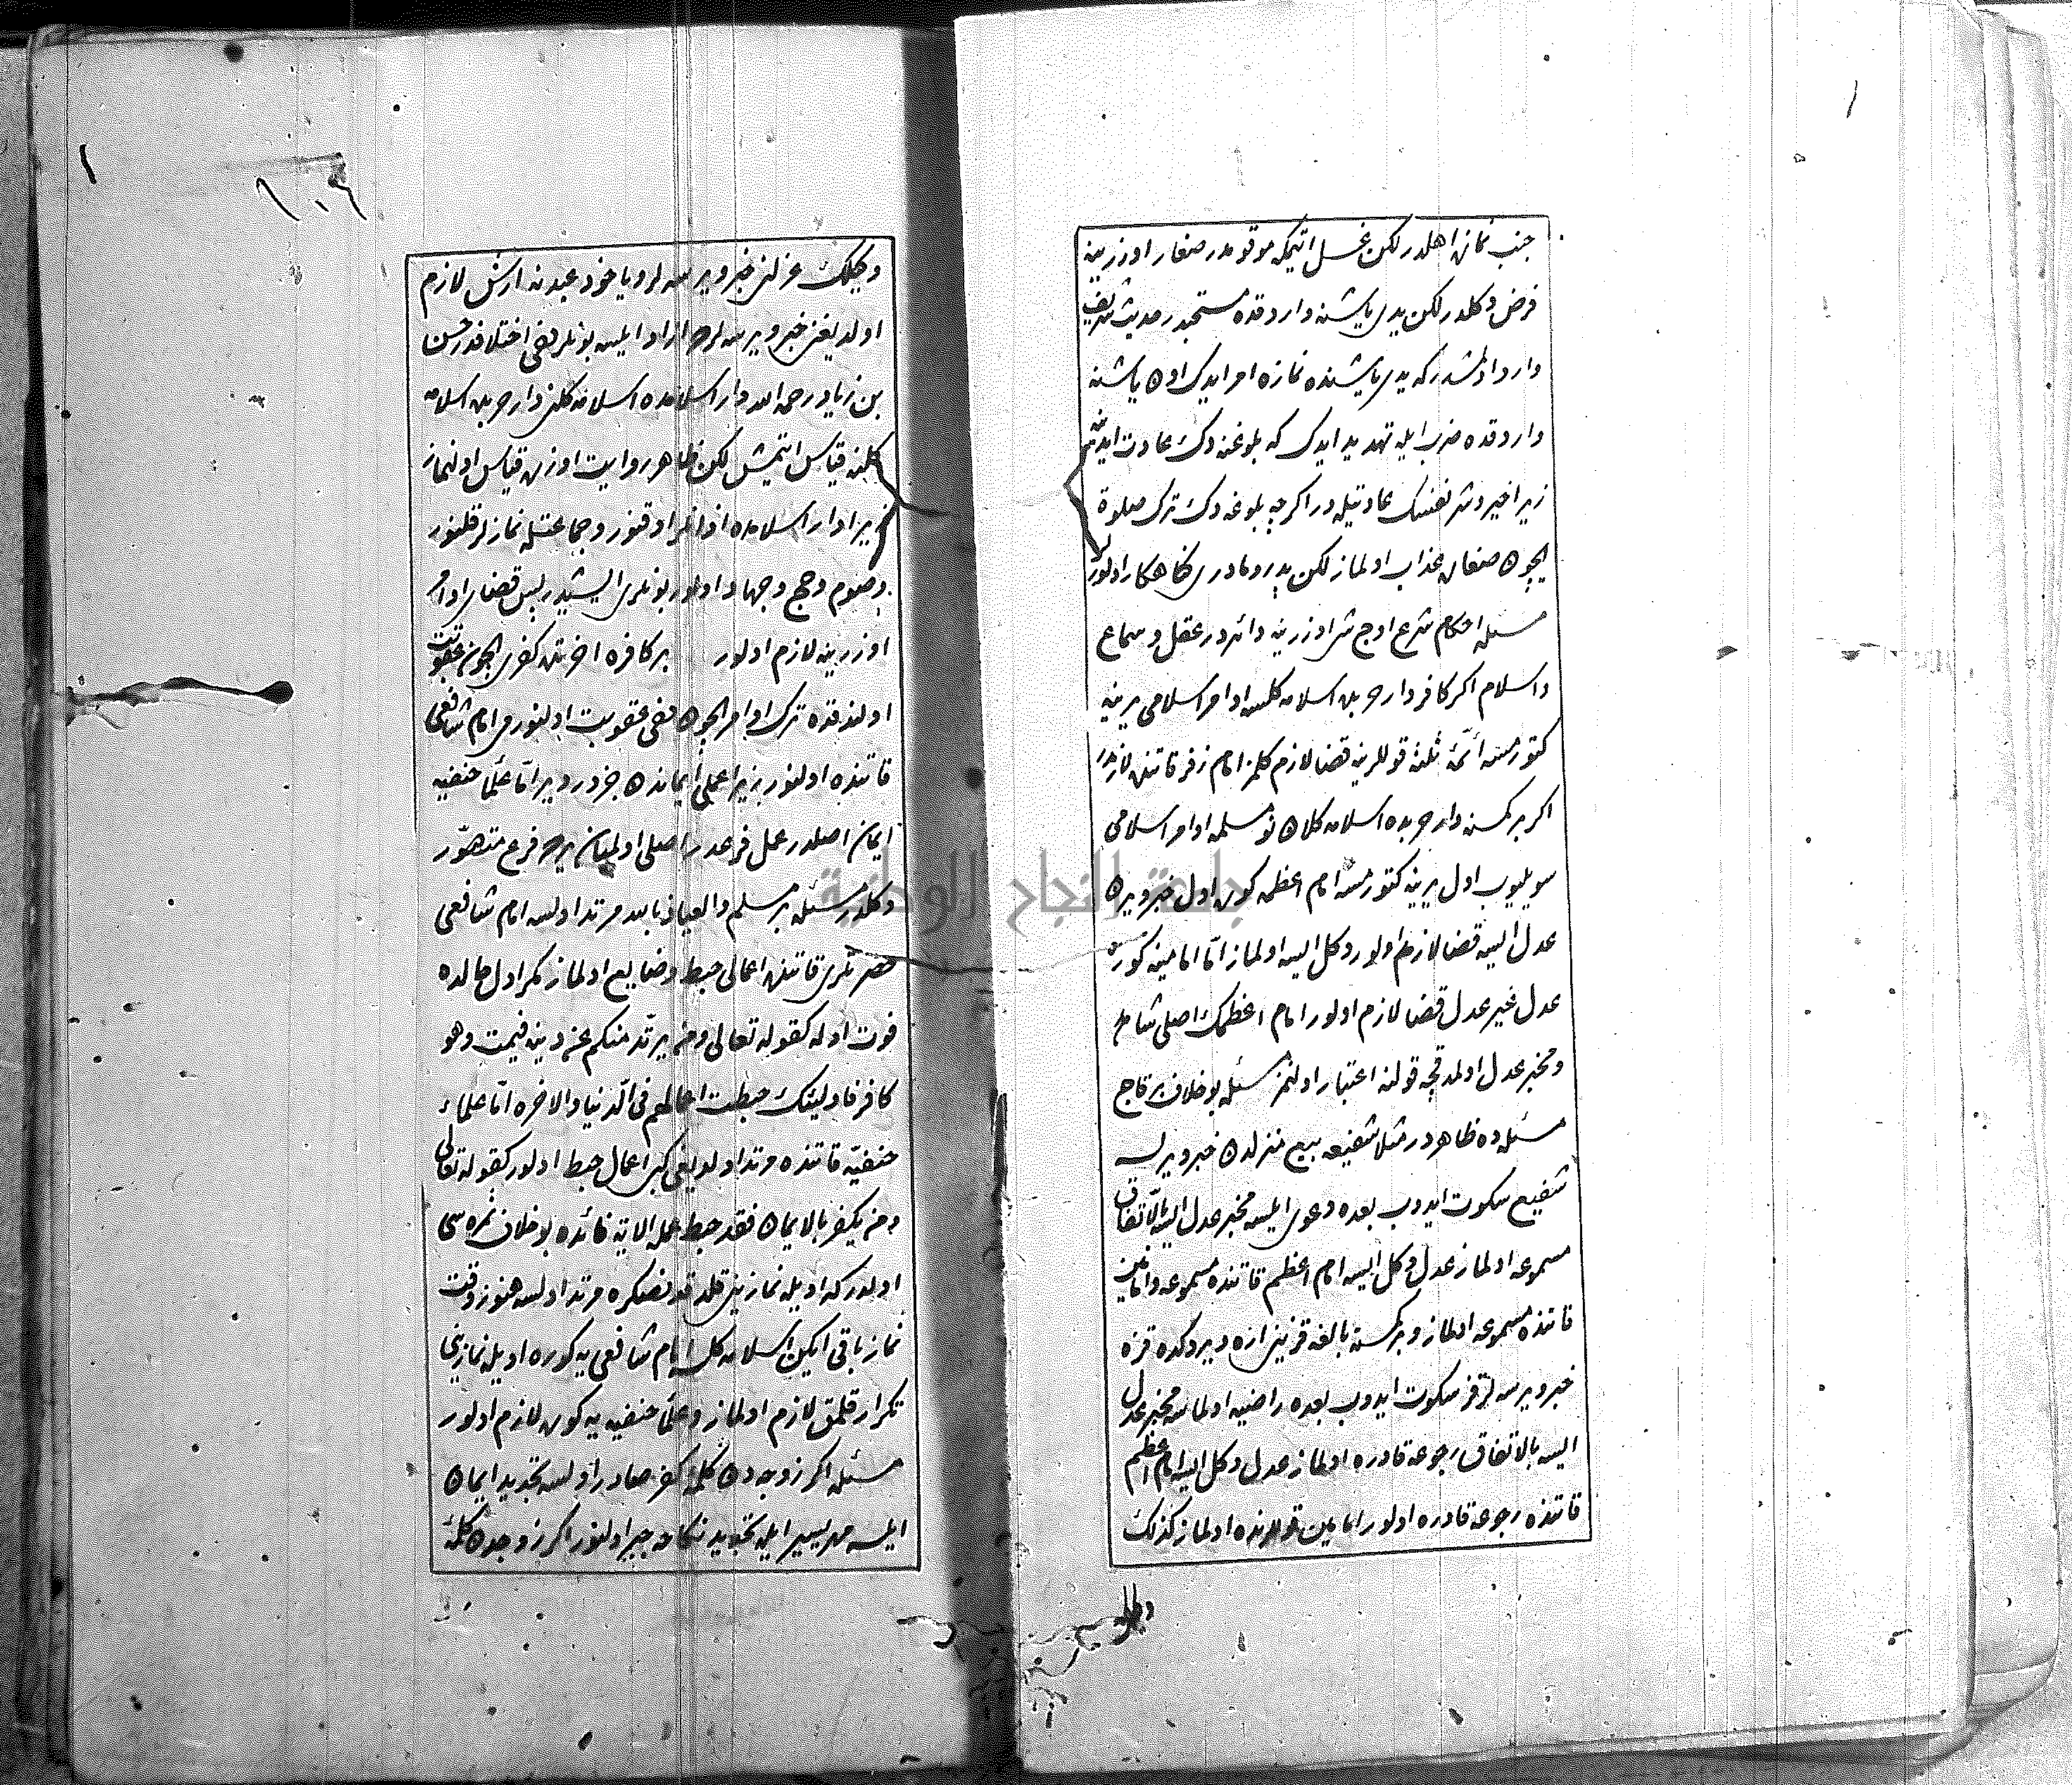 جنب نمازه اهلدر لكن غسل اتيمكه موقوفدر صغار اوزرينه
فرض دكلدر لكن يدى ياشنه واردقده مستحبدر حديث شريف
وارد اولمشدر كه يدى ياشنده نمازه امر ايدك اون ياشنه
واردقده ضرب ايله تهديد ايدك كه بلوغنه دك عادت ايدينه
زيرا خير وشر نفسك عادتيله در اكرچه بلوغه دك ترك صلوة
ايچون صغاره عذاب اولماز لكن پدر ومادرى كناهكار اولور
مسئله احكام شرع اوچ شى اوزرينه دائردر عقل وسماع
واسلام اكر كافر دار حربدن اسلامه كلسه اوامر اسلامى يرينه
كتورمسه أئمۀ ثلثه قوللرينه قضا لازم كلمز امام زفر قاتنده لازمدر
اكر بر كمسنه دار حربده اسلامه كلان نو مسلمه اوامر اسلامى
سويليوب اول يرينه كتورمسه امام اعظمه كوره اول خبر ويرن
عدل ايسه قضا لازم اولور دكل ايسه اولماز امّا امامينه كوره
عدل غير عدل قضا لازم اولور امام اعظمك اصلى شاهد
ومخبر عدل اولمدقچه قولنه اعتبار اولنمز مسئله بو خلاف بر قاچ
مسئله ده ظاهردر مثلا شفيعه بيع منزلدن خبر ويرلسه
شفيع سكوت ايدوب بعده دعوى ايلسه مخبر عدل ايسه بالاتفاق
مسموعه اولماز عدل دكل ايسه امام اعظم قاتنده مسموعه وامامين
قاتنده مسموعه اولماز وبر كمسنه بالغه قزينى اره ويردكده قزه
خبر ويرسه لر قز سكوت ايدوب بعده راضيه اولماسه مخبر عدل
ايسه بالاتفاق رجوعه قادره اولماز عدل دكل ايسه امام اعظم
قاتنده رجوعه قادره اولور امامين قوللرنده اولماز كذلك
وكيلك
وكيلك عزلنى خبر ويرسه لر وياخود عبدنه ارش لازم
اولديغنى خبر ويرسه لر ازاد ايلسه بونلر دخى اختلافدر حسن
بن زياد رحمه الله دار اسلامده اسلامه كلنى دار حربدن اسلامه
كلنه قياس ايتمشدر لكن ظاهر روايت اوزره قياس اولنماز
زيرا دار اسلامده اذانلر اوقنور وجماعتله نمازلر قلنور
وصوم وحج وجهاد اولور بونلرى ايشيدر پس قضاى اوامر
اوزرينه لازم اولور بر كافره اخرتده كفرى ايچون عقوبت
اولندقده ترك اوامر ايچون دخى عقوبت اولنور مى امام شافعى
قاتنده اولنور زيرا عملى ايماندن جزدر دير امّا علما حنفيه
ايمان اصلدر عمل فرعدر اصلى اولميان يرده فرع متصوّر
دكلدر مسئله بر مسلم والعياذ بالله مرتد اولسه امام شافعى
حضرتلرى قاتنده اعمالى حبط وضايع اولماز مكر اول حالده
فوت اوله كقوله تعالى ومن يرتدد منكم عن دينه فيمت وهو
كافر فاولئك حبطت اعمالهم فى الدّنيا والاخره امّا علماء
حنفيّه قاتنده مرتد اولديغى كبى اعمال حبط اولور كقوله تعالى
ومن يكفر بالايمان فقد حبط عمله الاية فائده بو خلاف ثمره سى
اولدر كه اويله نمازينى قلدقدنصكره مرتد اولسه هنوز وقت
نماز باقى ايكن اسلامه كلسه امام شافعى يه كوره اويله نمازينى
تكرار قلمق لازم اولماز وعلما حنفيه يه كوره لازم اولور
مسئله اكر زوجه دن كلمۀ كفر صادر اولسه تجديد ايمان
ايلسه مهر يسير ايله تجديد نكاحه جبر اولنور اكر زوجدن كلمۀ
جامعة النجاح الوطنية